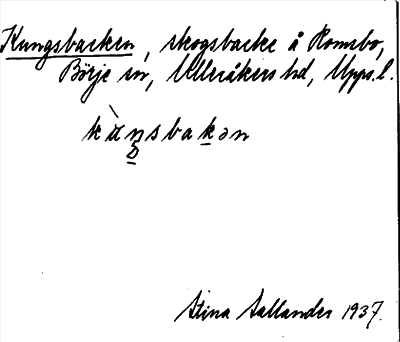 Kungsbacken, skogsbacke å Romsbo,
Börje sn, Ulleråkers hd, Upps. l.
Stina Sallander 1937.